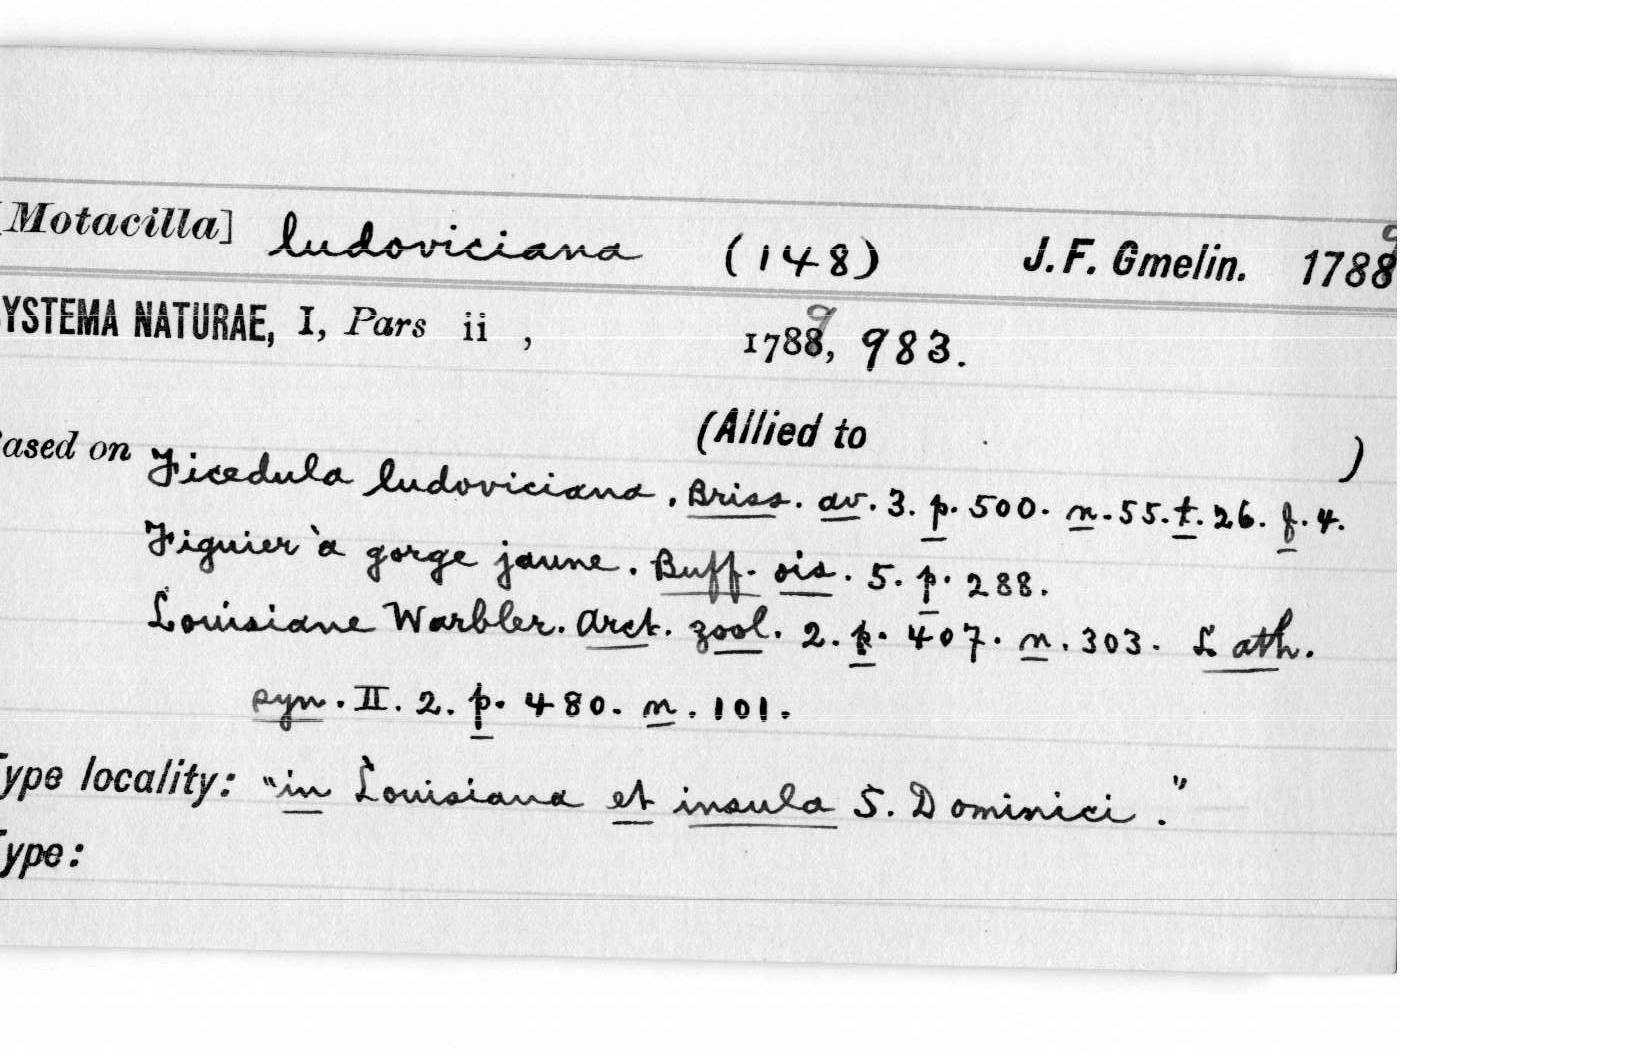 [Motacilla] ludoviciana (148) J. F. Gmelin. 1788 9
YSTEMA NATURAE, I, Pars ii , 1788 9, 983.
(Allied to . )
ased on Ficedula ludoviciana. Briss. av. 3. p. 500. n. 55. t. 26. f. 4.
Figuier à gorge jaune. Buff. ois. 5. p. 288.
Louisiane Warbler. Arct. zool. 2. p. 407. n. 303. Lath.
syn. II. 2. p. 480. n. 101.
ype locality: "in Louisiana et insula S. Dominici."
ype: